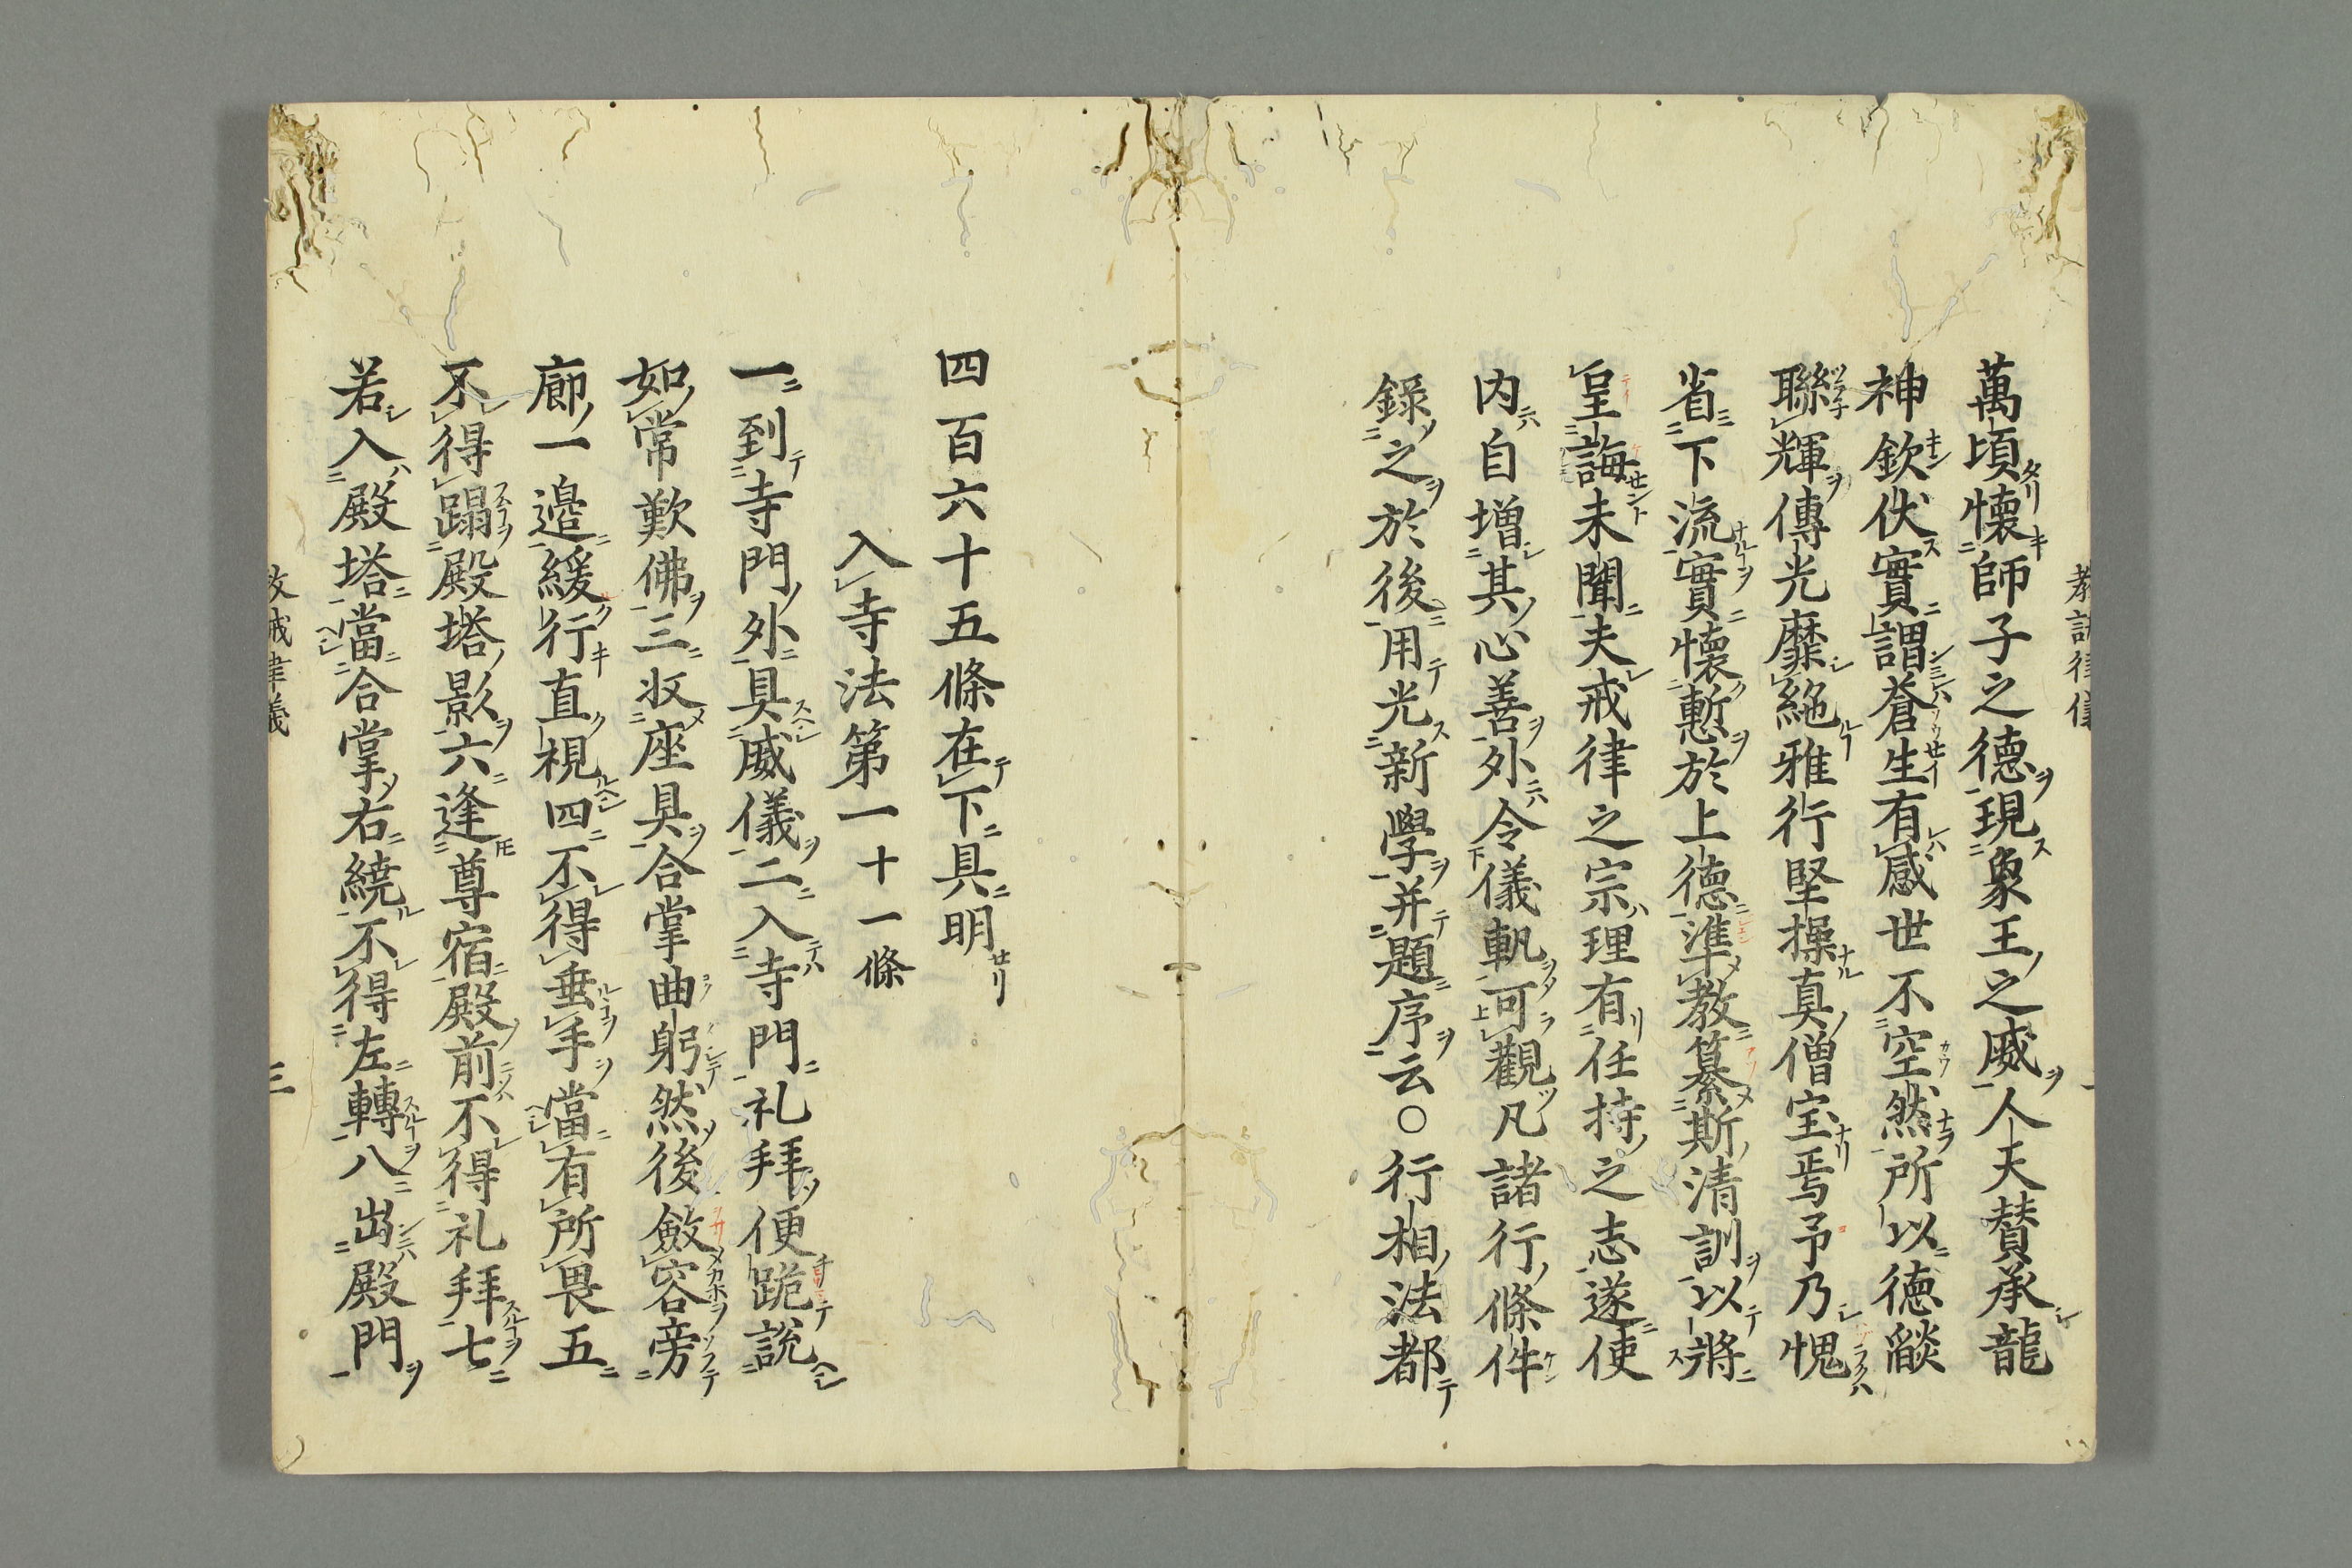 萬頃懷師子之德現象王之威人天賛承龍
神欽伏實謂蒼生有感世不空然所以徳燄
聯輝傳光靡絶雅行堅操真僧宝焉予乃愧
省下流實懷慙於上德準教纂斯清訓以將
呈誨未聞夫戒律之宗理有任持之志遂使
内自増其心善外令儀軌可觀凡諸行條件
錄之於後用光新學并題序云○行相法都
四百六十五條在下具明
入寺法第一十一條
一到寺門外具威儀二入寺門礼拜便跪説
如常歎佛三收座具合掌曲躬然後斂容旁
廊一邉緩行直視四不得垂手當有所畏五
不得蹋殿塔影六逢尊宿殿前不得礼拜七
若入殿塔當合掌右繞不得左轉八出殿門
三